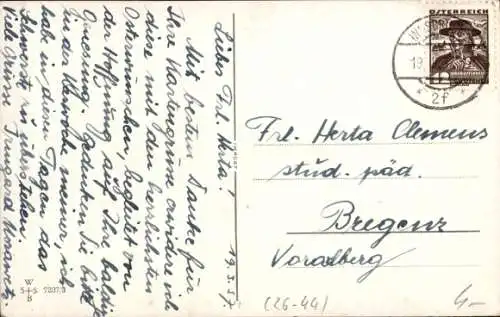 Liebes Frl. Herta!
Mit besten Danke für
Ihre Kartengrüsse erwidere ich
diese mit den herzlichsten
Osterwünschen, begleitet von
der Hoffnung auf Ihre baldige
Genesung. Gedenken Sie bitte
in der Karwoche meiner, ich
habe in diesen Tagen das
Schwerste zu überstehen.
Viele Grüsse Irmgard
19.3.37
W
S+S 7237/3
B
ÖSTERREICH
19.
2f
Frl. Herta Clemens
stud. päd.
Bregenz
Vorarlberg
(26-44)
4-